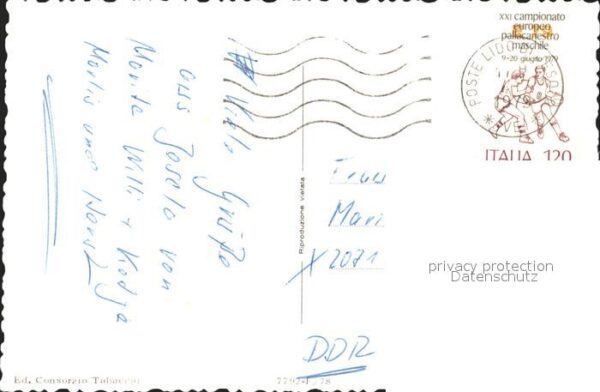 XXI campionato
europeo
pallacanestro
maschile
9-20 giugno 1979
POSTE LIDO DI
ITALIA 120
Viele Grüße
aus Jesolo von
Willi +
Marlis und
Riproduzione Vietata
Frau
Mari
X 2071
DDR
privacy protection
Datenschutz
Ed. Consorzio Tabaccai